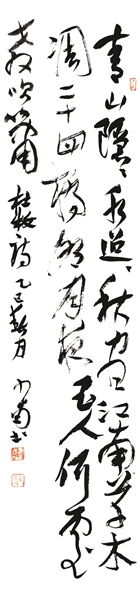 青山隱〻水迢〻秋尽江南草木
凋二十四橋明月夜玉人何處
教吹箫 杜牧詩 乙巳 月